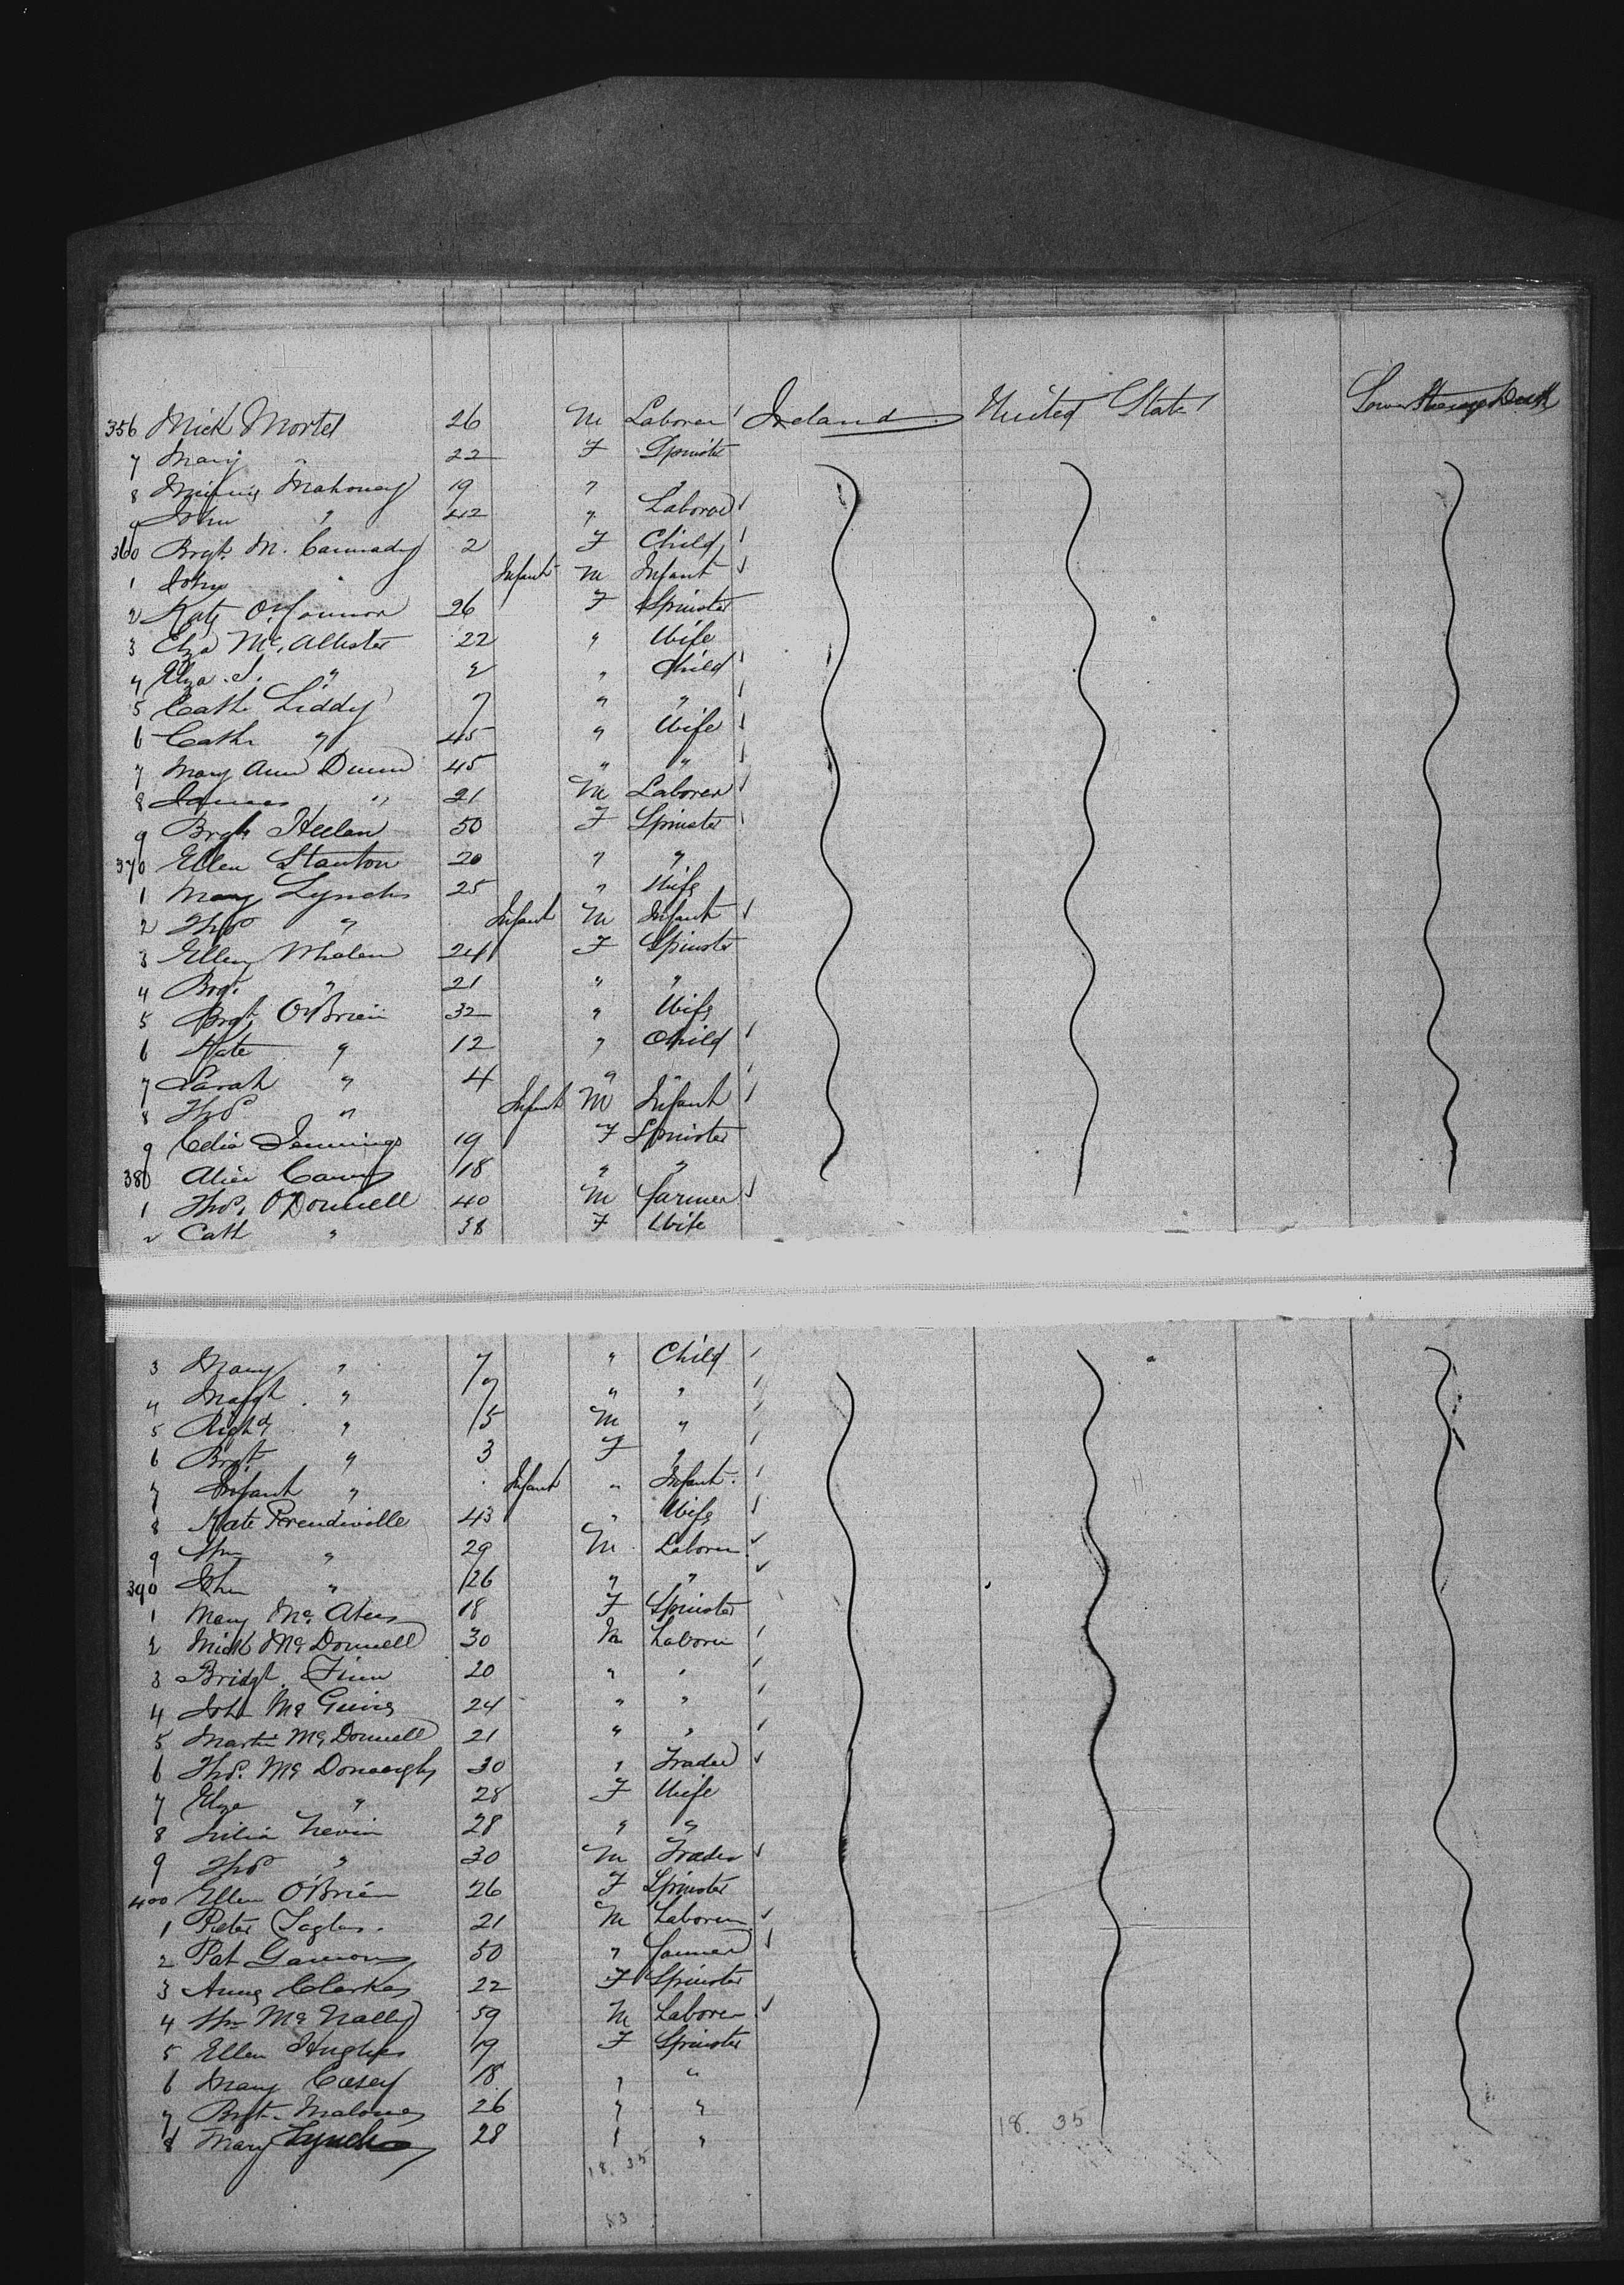 356 Mick Mortel 26 M Laborer Ireland United States Lower Steerage Deck
7 Mary " 22 F Spinster
8 Mahoney 19 " "
9 John " 42 " Laborer
360 Brgt. M. Cannady 2 F Child
1 John " Infant M Infant
2 Kate O'Connor 26 F Spinster
3 Elza McAllister 22 " Wife
4 Elza J. " 2 " Child
5 Cath Liddy 7 " "
6 Cath " 45 " Wife
7 Mary Ann Dunn 45 " "
8 James " 21 M Laborer
9 Brgt Heelan 50 F Spinster
370 Ellen Stanton 20 " "
1 Mary Lynch 25 " Wife
2 Thos " Infant M Infant
3 Ellen Whalen 24 F Spinster
4 Brgt. " 21 " "
5 Brgt. O'Brien 32 " Wife
6 Kate " 12 " Child
7 Sarah " 4 " "
8 Thos " Infant M Infant
9 Celia Jennings 19 F Spinster
380 Alice 18 " "
1 Thos. O'Donnell 40 M farmer
2 Cath " 38 F Wife
3 Mary " 7 " Child
4 Margt. " 7 " "
5 Richd " 5 M "
6 Brgt. " 3 F "
7 Infant " Infant " Infant
8 Kate Prendiville 43 " Wife
9 Wm " 29 M Laborer
390 John " 26 " "
1 Mary Mc 18 F Spinster
2 Mick McDonnell 30 M Laborer
3 Bridgt. Finn 20 " "
4 John McGuire 24 " "
5 Martin McDonnell 21 " "
6 Thos. McDonough 30 " Trader
7 Elza " 28 F Wife
8 Julia Nevin 28 " "
9 Thos " 30 M Trader
400 Ellen O'Brien 26 F Spinster
1 Peter 21 M Laborer
2 Pat 50 " farmer
3 Anne Clarke 22 F Spinster
4 Wm McNally 59 M Laborer
5 Ellen Hughes 19 F Spinster
6 Mary Casey 18 " "
7 Brgt. Maloney 26 " "
8 Mary Lynch 28 " "
18. 35
18. 35
53